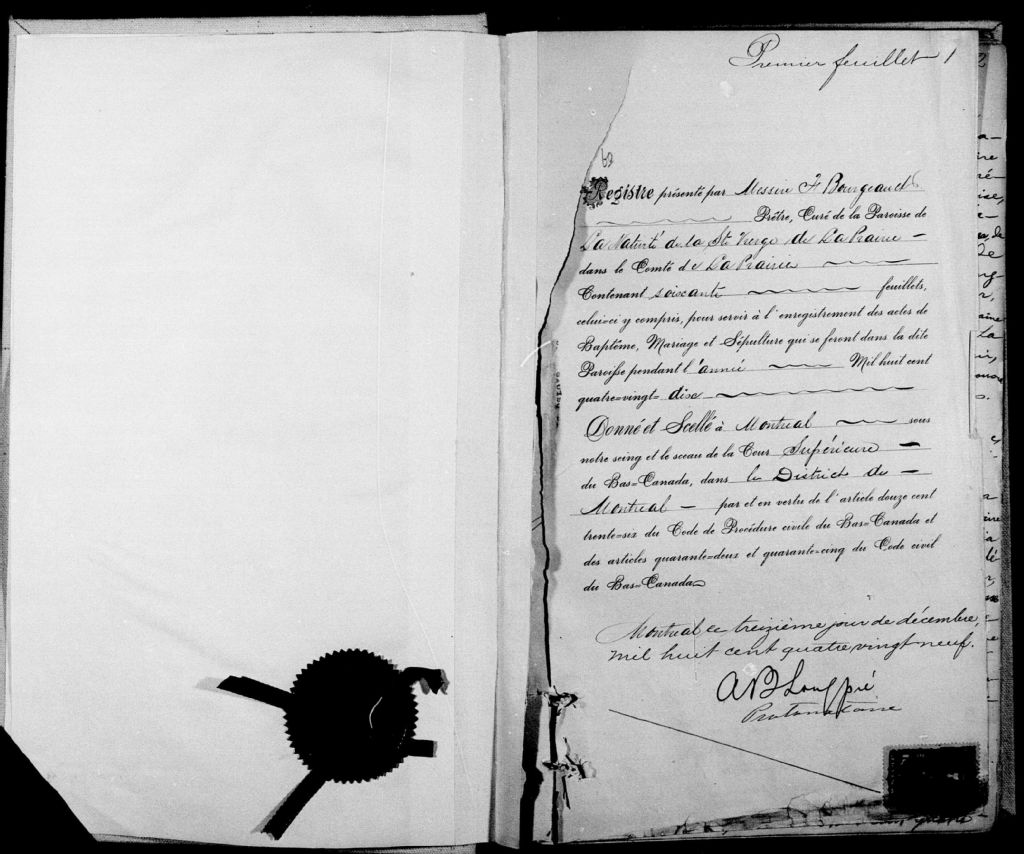 Premier feuillet 1
Registre présenté par Messire F Bourgeault
Prêtre, Curé de la Paroisse de
La Nativité de la Ste Vierge de La Prairie —
dans le Comté de La Prairie
Contenant soixante feuillets,
celui=ci y compris, pour servir à l'enregistrement des actes de
Baptême, Mariage et Sépulture qui se feront dans la dite
Paroisse pendant l'année Mil huit cent
quatre=vingt= dix
Donné et Scellé à Montréal sous
notre seing et le sceau de la Cour Supérieure —
du Bas=Canada, dans le District de —
Montréal — par et en vertu de l'article douze cent
trente=six du Code de Procédure civile du Bas=Canada et
des articles quarante=deux et quarante=cinq du Code civil
du Bas=Canada
Montréal ce treizième jour de décembre,
mil huit cent quatre vingt neuf.
Protonotaire